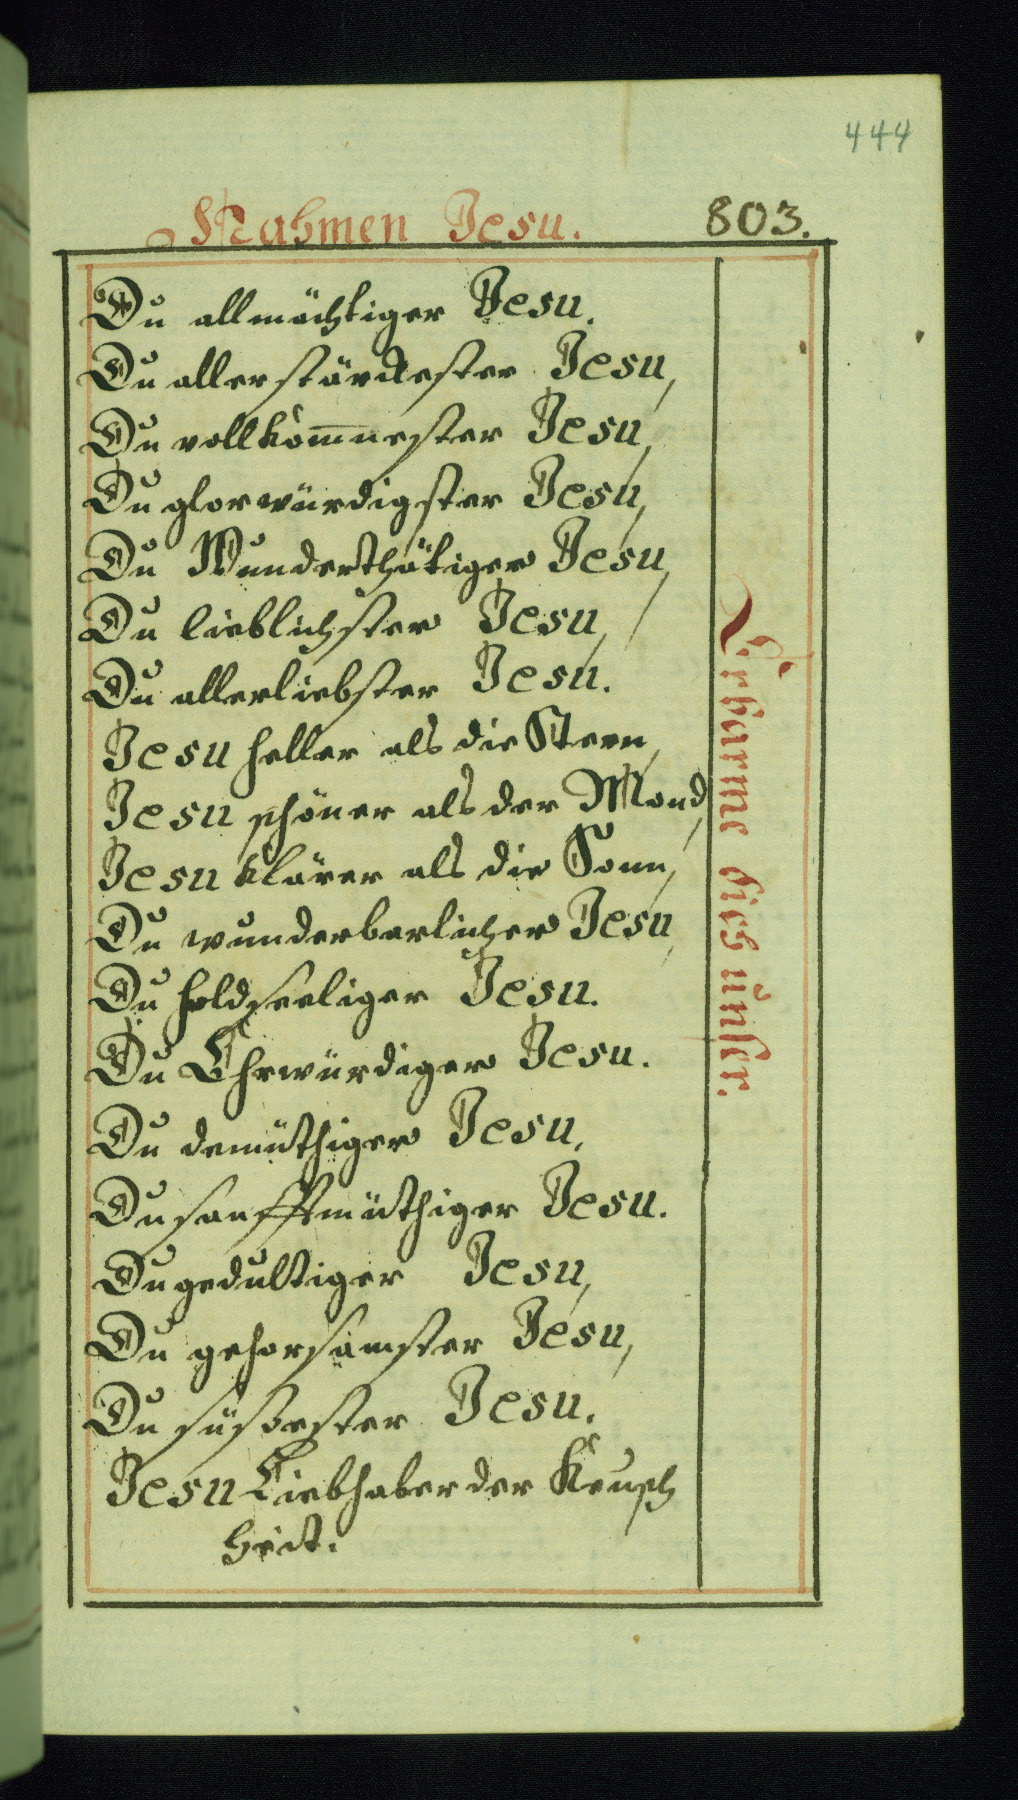 444
Nahmen Jesu. 803.
Du allmächtiger Jesu.
Du allerstärckester Jesu,
Du vollkom̅nester Jesu,
Du glorwürdigster Jesu,
Du Wunderthätiger Jesu,
Du lieblichster Jesu,
Du allerliebster Jesu.
Jesu heller als die Stern,
Jesu schöner als der Mond,
Jesu klärer als die Sonn,
Du wunderbarlicher Jesu,
Du holdseeliger Jesu.
Du Ehrwürdiger Jesu.
Du demüthiger Jesu,
Du sanfftmüthiger Jesu.
Du gedultiger Jesu,
Du gehorsamster Jesu,
Du süssester Jesu.
Jesu Liebhaber der Keusch
heit.
Erbarme dich unser.